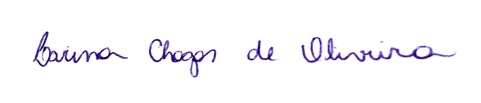 Larissa Chagas de Oliveira